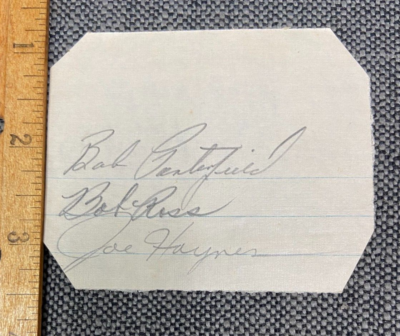 1
2
3
Bob Porterfield
Bob Ross
Joe Haynes